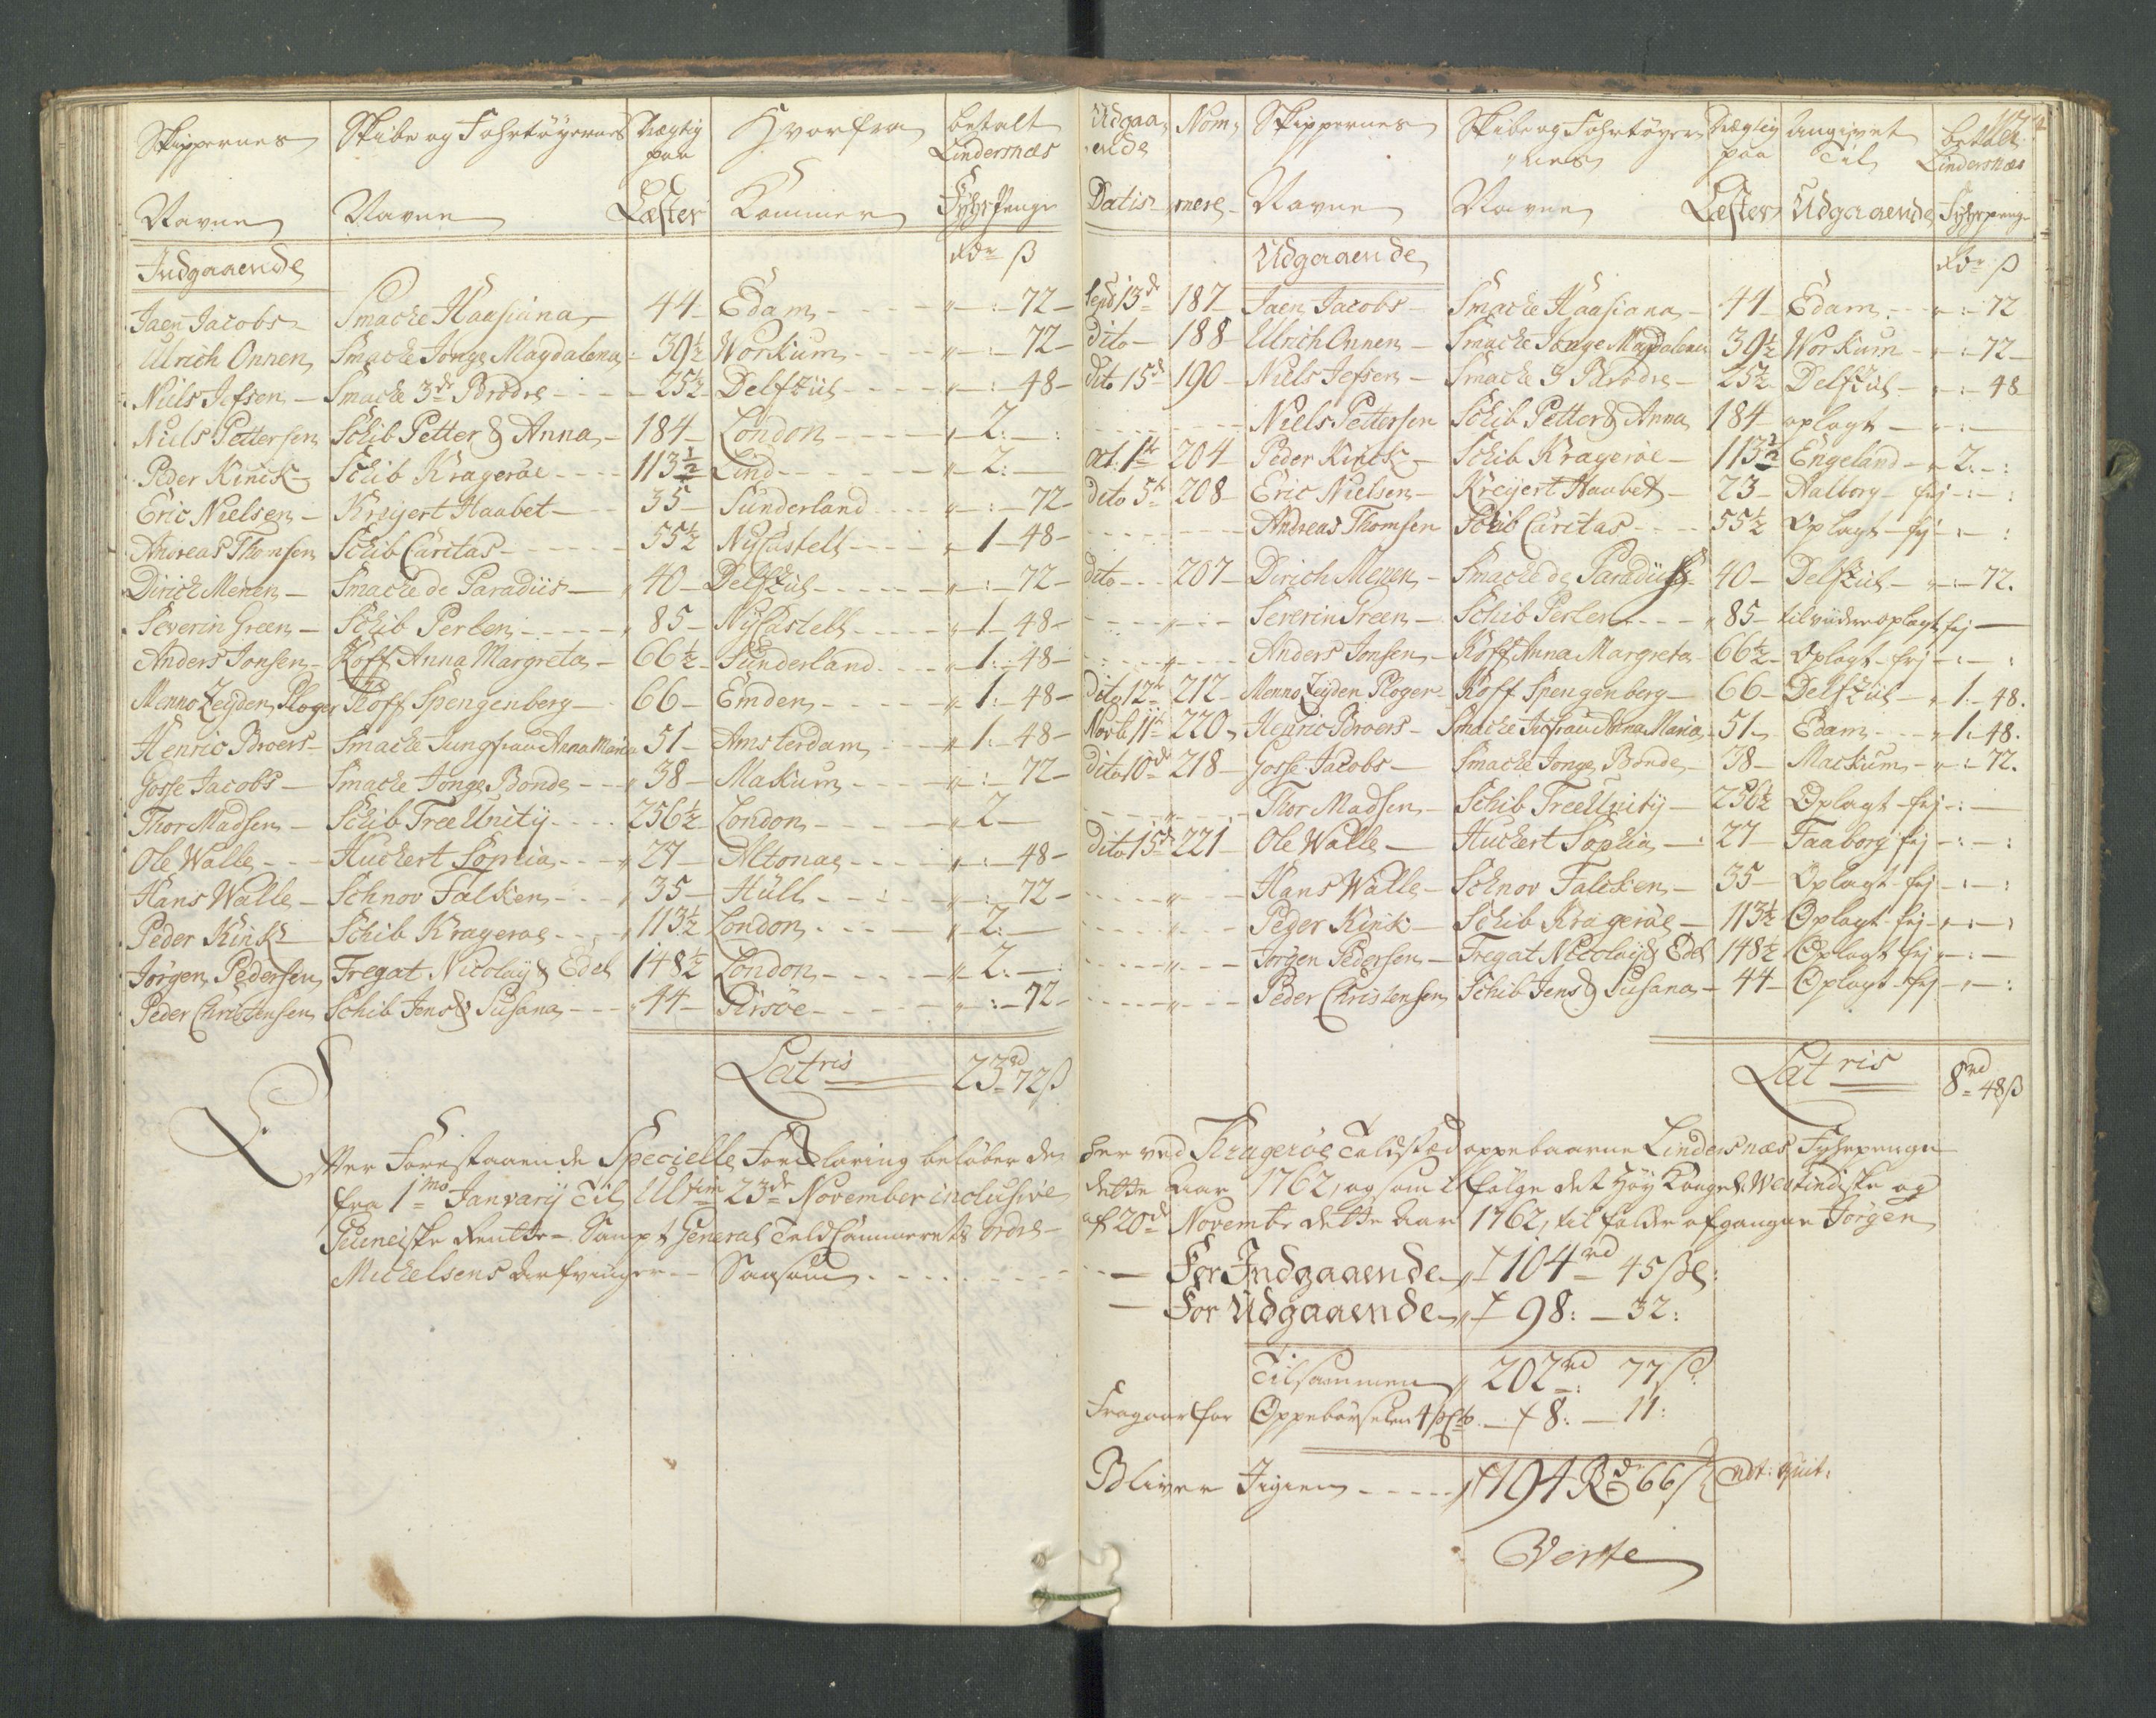 Skippernes Skibe og Fahrtøyernes Drægtig Hvorfra betalt
paa Lindersnæs
Navne Navne Læster Kommer Fyhrpenge
Indgaaende rdr ß
Jaen Jacobs - Smacke Haasiana - 44 - Edam - - „ - : - 72 -
Ulrich Onnen Smacke Jonge Magdalena - 39½ Workum - - „ - : - 72 -
Niels Jessen - Smacke 3de Brødre - - 25½ - Delfzül - - „ - : - 48 -
Niels Pettersen Schib Petter & Anna - 184 - London - - „ - 2: - :
Peder Kinck - Schib Kragerøe - - 113½ Lind - - „ - 2: -
Eric Nielsen - Kreyert Haabet - - 35 - Sunderland - - „ - : - 72 -
Andreas Thomsen Schib Caritas - - 55½ NyCastell - - „ - 1 - 48 -
Dirich Menen - Smacke de Paradiis - „ 40 - Delfzül - - „ - : - 72 -
Severin Green - Schib Perlen - - „ 85 - NyCastell - - „ 1 - 48 -
Anders Jonsen - Koff Anna Margreta - 66½ - Sunderland - - „ 1: - 48 -
Menno Zeyden Ploger Koff Spengenberg - 66 - Emden - - „ 1: - 48 -
Henric Broers - Smacke Jungfrau Anna Maria 51 - Amsterdam - - „ 1: - 48 -
Gosse Jacobs - Smacke Jonge Bonde - - „ 38 - Makum - - „ : - 72 -
Thor Madsen - Schib Free Unity - - 256½ London - - „ 2 -
Ole Walle - - Huckert Sophia - - „ 27 - Altonae - - „ : - 48 -
Hans Walle - Schnov Falken - - „ 35 - Hüll - - „ : - 72 -
Peder Kink - Schib Kragerøe - - „ 113½ London - - „ 2: -
Jørgen Pedersen Fregat Nicolay & Edel 148½ London - - „ 2: - :
Peder Christensen Schib Jens & Susana - - „ 44 - - - „ : - 72 -
Latris 23rd 72ß
Efter Forestaaende Specielle Forklaring beløber de
fra 1mo Janvarij Til Ultim 23de November inclusive
Guineiske Rentte- Sampt General Told Cammerets Ordre -
Michelsens Arfvinger - Saasom - -
Udgaa- Nom- Skippernes Skibe og Fahrtøyer- Drægtig Angivet betalt
ende nes paa Til Lindersnæs
Datis - mere - Navne Navne Læster Udgaaende Fyhrpenge
Udgaaende rdr ß
Sept 13de 187 - Jaen Jacobs - Smacke Haasiana - 44 - Edam - - „ - : - 72
dito - 188 - Ulrich Onnen - Smacke Jonge Magdalena 39½ Workum - „ - : - 72 -
dito 15de 190 - Niels Jessen - Smacke 3 Brødre - 25½ - Delfzül - „ - : - 48
- - Niels Pettersen Schib Petter & Anna 184 - oplagt - „ - : -
Oct: 1te 204 - Peder Kinck - Schib Kragerøe - 113½ Engeland - „ 2: - :
dito 5te 208 - Eric Nielsen - Kreyert Haabet - 23 - Aalborg - frj - : - :
- - Andreas Thomsen Schib Caritas - - 55½ Oplagt - frj - : - :
dito - - 207 - Dirich Menen - Smacke de Paradiis - 40 - Delfzül - „ - : - 72.
- - „ - - Severin Green - Schib Perlen - - „ 85 - til vidre oplagt frj -
- - „ - - Anders Jonsen - Koff Anna Margreta - 66½ - Oplagt - frj - : - :
dito 12te 212 - Menno Zeyden Ploger - Koff Spengenberg - 66 - Delfzül - „ 1 - 48.
Novb 11te 220 - Henric Broers - Smacke Jufrau Anna Maria - 51 - Edam - - „ 1: 48.
dito 10de 218 - Gosse Jacobs - Smacke Jonge Bonde - 38 - Mackum - „ : - 72.
- - „ - - Thor Madsen - Schib Free Unity - 256½ Oplagt - frj - : -
dito 15de 221 - Ole Walle - Huckert Sophia - : 27 - Faaborg frj - : - :
- - „ - - Hans Walle - Schnov Falcken - 35 - Oplagt - frj - : - :
- - „ - - Peder Kink - Schib Kragerøe - 113½ Oplagt - frj - : - :
- - „ - - Jørgen Pedersen - Fregat Nicolay & Edel 148½ Oplagt frj „ - : -
- - „ - - Peder Christensen Schib Jens & Susana - 44 - Oplagt - frj - : - :
Latris 8rd 48ß
her ved Kragerøe Toldsted oppebaarne Lindersnæs Fyhrpenge
dette Aar 1762, og som i følge det Høy Kongel. Westindiske og
af 20de Novembr dette Aar 1762, til falder afgangne Jørgen
- For Indgaaende „ 104rd 45ß
- For Udgaaende „ 98: - 32:
Tilsammen „ 202rd: 77ß
Fragaar for Oppebørselen 4 pCto - 8: - 11:
Bliver Igien - - 194 Rd 66ß
Verte